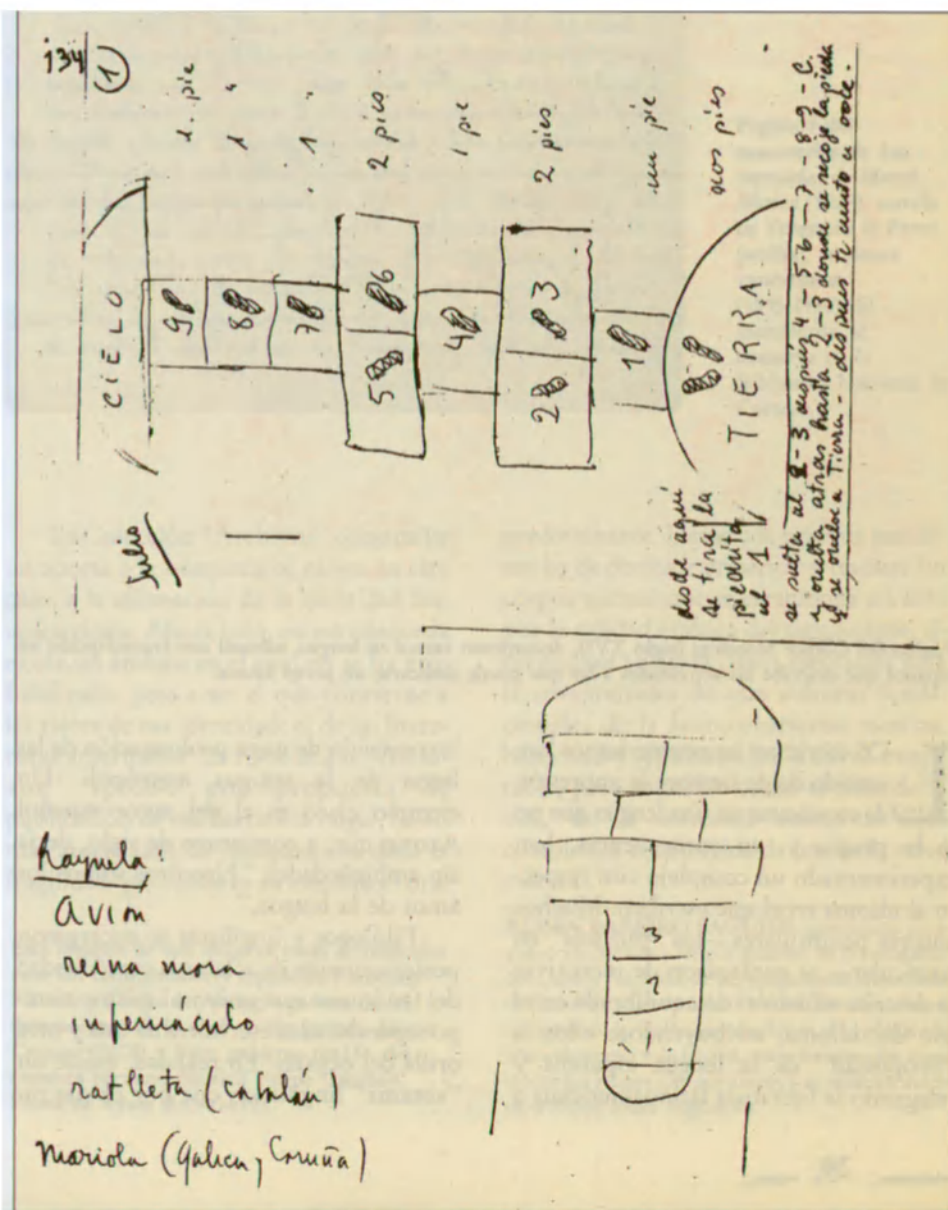 134
(1)
1 pie
1 "
1
2 pies
1 pie
2 pies
un pie
dos pies
CIELO
9
8
7
5 6
4
2 3
1
TIERRA
Julio
desde aquí
se tira la
piedrita
al 1
se suelta al 2-3 después 4-5-6-7-8-9-C.
y vuelta atrás hasta 2-3 donde se recoge la piedra
y se vuelve a Tierra - después te cuento u ole.
Rayuela:
avión
reina mora
infernáculo
ratlleta (Catalán)
Mariola (Galicia, Coruña)
1
2
3